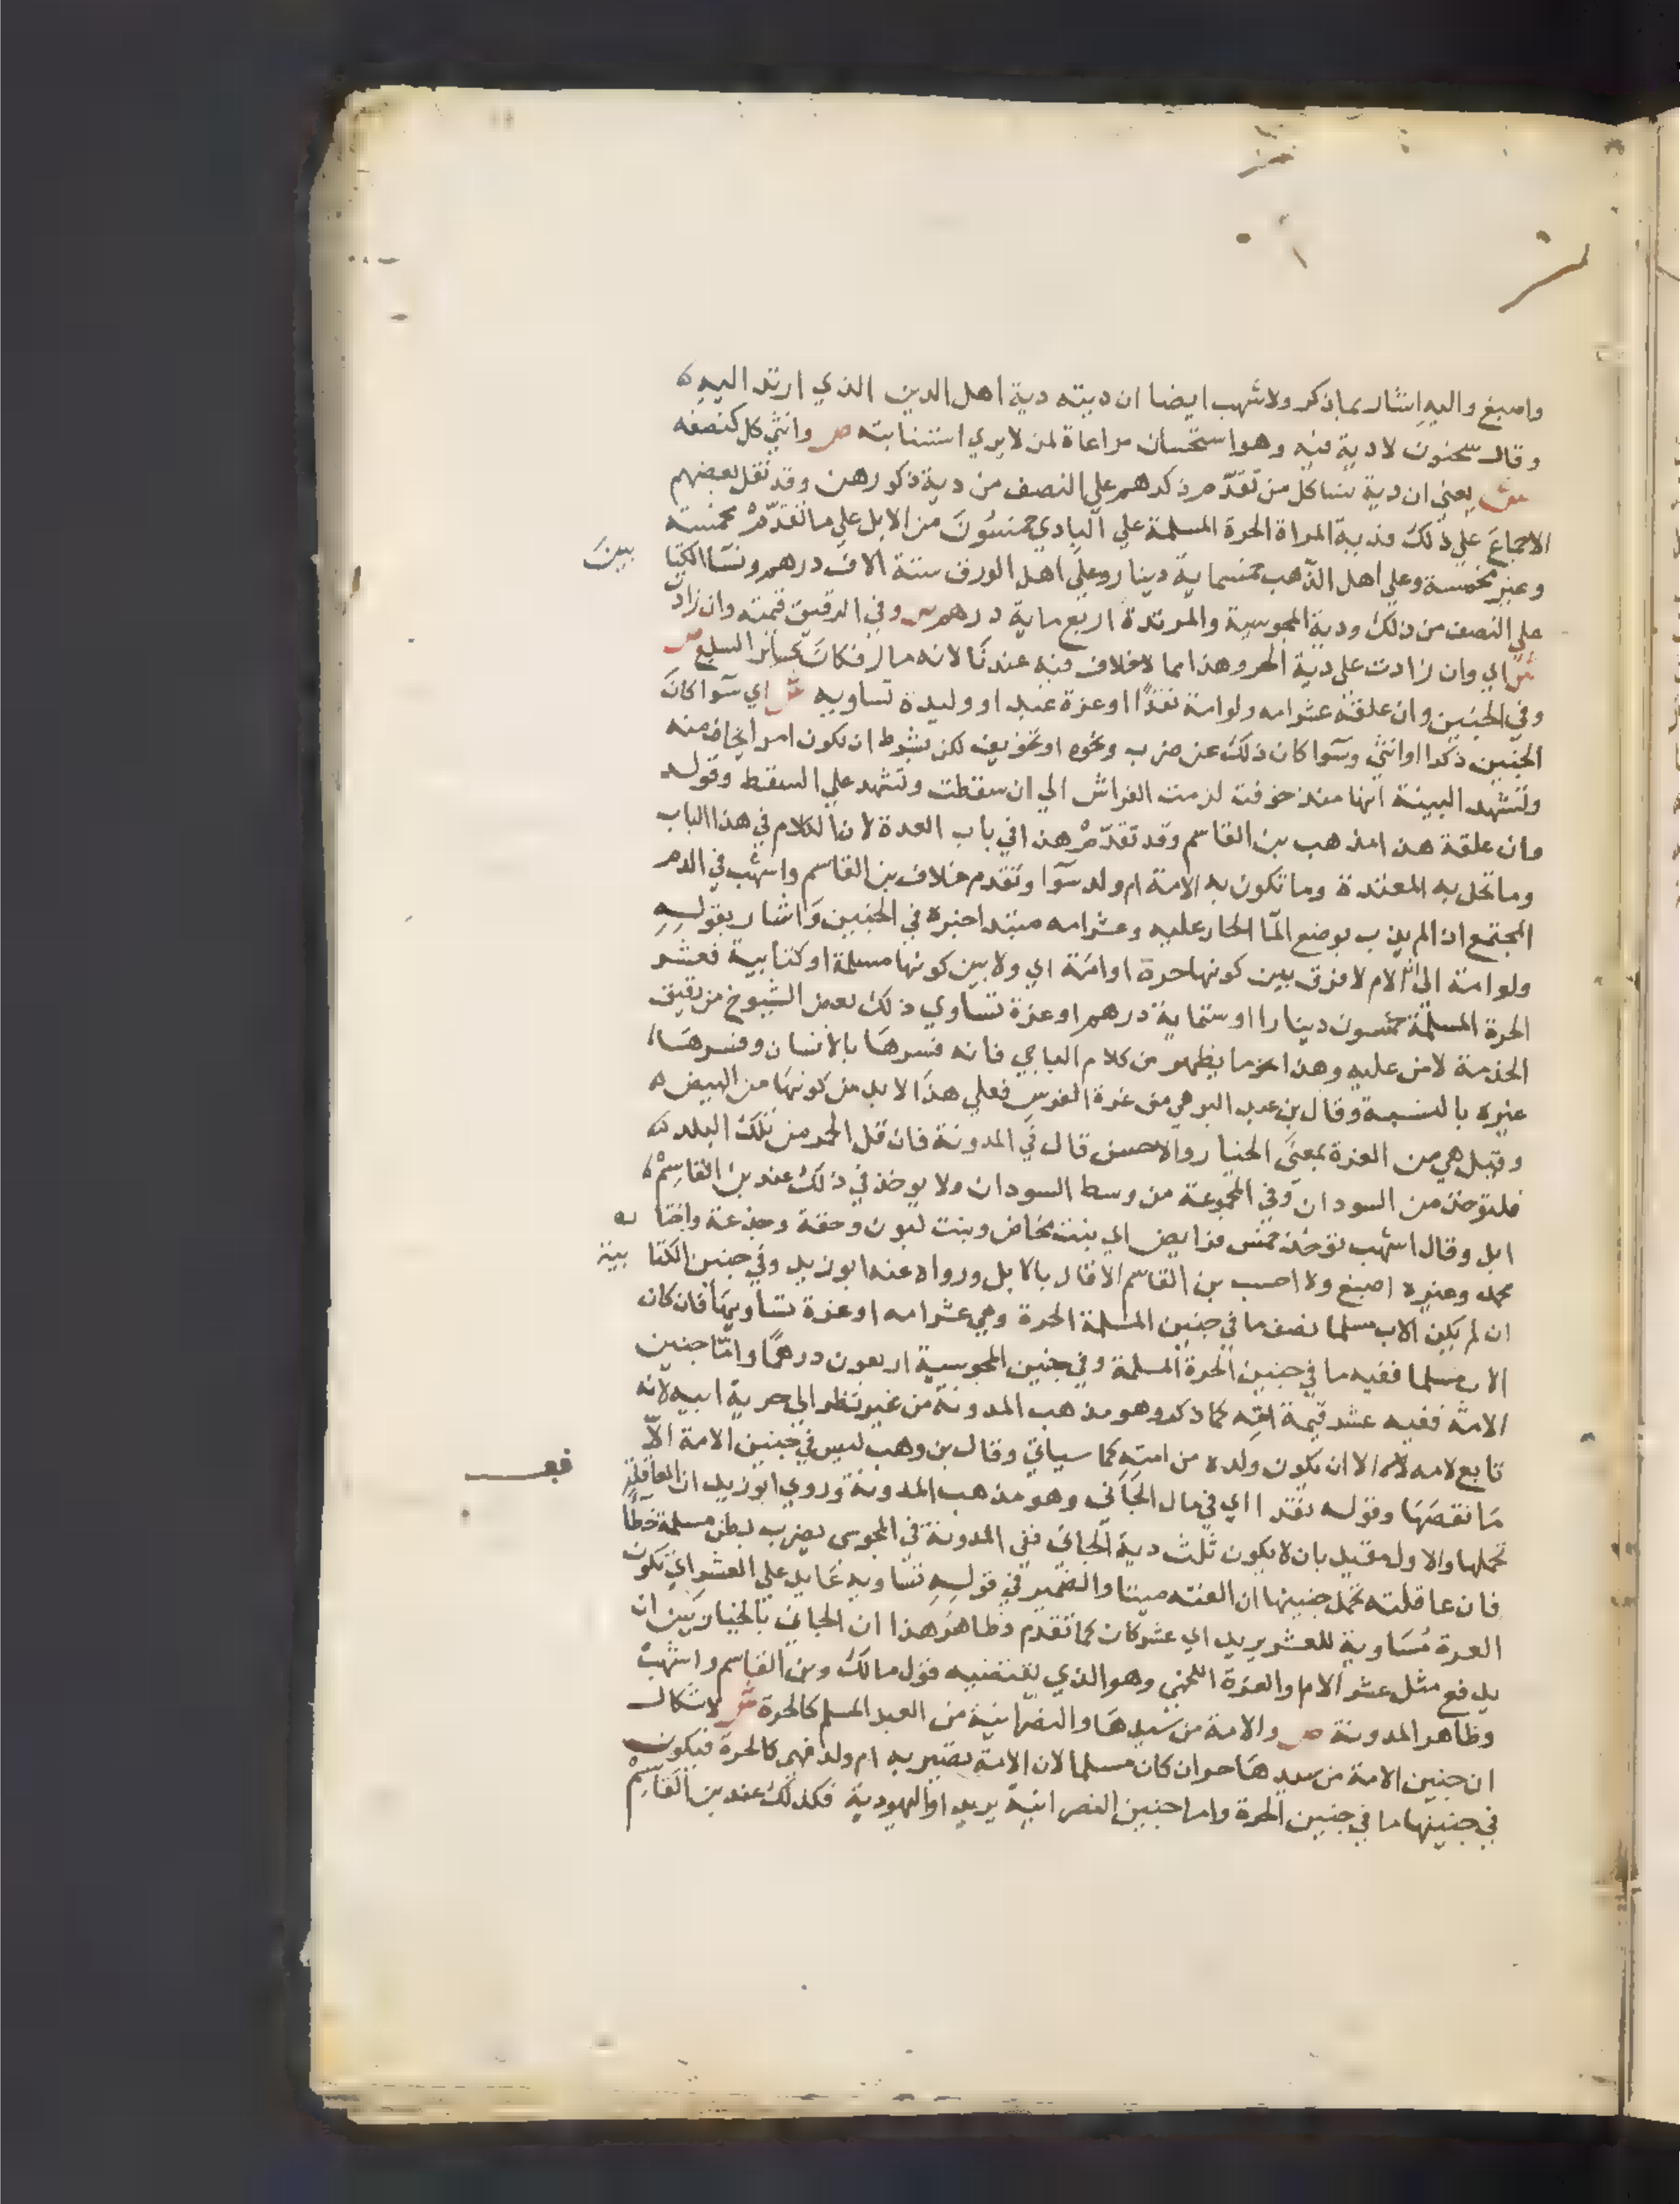 واصبغ واليه اشار بما ذكر ولاشهب ايضا ان ديته دية اهل الدين الذي ارتد اليه ه
وقال سحنون لا دية فيه وهو استحسان مراعاة لمن لا يري استتابته ص وانثي كل كنصفه
ش يعني ان دية نسا كل من تقدم ذكرهم علي النصف من دية ذكورهن وقد نقل بعضهم
الاجماع علي ذلك فدية المراة الحرة المسلمة علي البادي خمسون من الابل علي ما تقدم مخمسة
وغير مخمسة وعلي اهل الذهب خمسماية دينار وعلي اهل الورق ستة الاف درهم ونسا الكتا بين
علي النصف من ذلك ودية المجوسية والمرتدة اربع ماية درهم ص وفي الرقيق قيمته وان زادت
ش اي وان زادت علي دية الحر وهذا مما لا خلاف فيه عندنا لانه مال فكان كسائر السلع ص
وفي الجنين وان علقة عشر امه ولو امة نقدا او غرة عبد او وليدة تساويه ش اي سوا كان
الجنين ذكرا او انثي وسوا كان ذلك عن ضرب ونحوه او تخويف لكن بشرط ان يكون امرا يخاف منه
وتشهد البينة انها منذ خوفت لزمت الفراش الي ان سقطت وتشهد علي السقط وقوله
وان علقة هذا مذهب بن القاسم وقد تقدم هذا في باب العدة لان الكلام في هذا الباب
وما تحل به المعتدة وما تكون به الامة ام ولد سوا وتقدم خلاف بن القاسم واشهب في الدم
المجتمع اذا لم يذب بوضع الما الحار عليه وعشر امه مبتدا خبره في الجنين واشار بقوله
ولو امة الي ان الام لا فرق بين كونها حرة او امة اي ولا بين كونها مسلمة او كتابية فعشر
الحرة المسلمة خمسون دينارا او ستماية درهم او غرة تساوي ذلك بعض الشيوخ من رقيق
الخدمة لا من عليه وهذا نحو ما يظهر من كلام الباجي فانه فسرها بالانسان وفسرها
غيره بالنسمة وقال بن عبد البر هي من غرة الفرس فعلي هذا لا بد من كونها من البيض ه
وقيل هي من الغرة بمعني الخيار والاحسن قال في المدونة فان قل الحمر من تلك البلد ه
فلتوخذ من السودان وفي المجموعة من وسط السودان ولا يوخذ في ذلك عند بن القاسم ه
ابل وقال اشهب توخذ خمس فرايض اي بنت مخاض وبنت لبون وحقة وجذعة واختا ره
محمد وغيره اصبغ ولا احسب بن القاسم الا قال بالابل ورواه عنه ابو زيد وفي جنين الكتا بية
ان لم يكن الاب مسلما نصف ما في جنين المسلمة الحرة وهي عشر امه او غرة تساويها فان كان
الاب مسلما ففيه ما في جنين الحرة المسلمة وفي جنين المجوسية اربعون درهما واما جنين
الامة ففيه عشر قيمة امه كما ذكر وهو مذهب المدونة من غير نظر الي حرية ابيه لانه
تابع لامه لا له الا ان يكون ولده من امته كما سياتي وقال بن وهب ليس في جنين الامة الا
ما نقصها وقوله نقدا اي في مال الجاني وهو مذهب المدونة وروي ابو زيد ان العاقلة
تحملها والاول مقيد بان لا يكون ثلث دية الجاني ففي المدونة في المجوسي يضرب بطن مسلمة خطأ
فان عاقلته تحمل جنينها ان القته ميتا والضمير في قوله تساويه عايد علي العشر اي تكون
الغرة مساوية للعشر يريد اي عشر كان كما تقدم وظاهر هذا ان الجاني بالخيار بين ان
يدفع مثل عشر الام والغرة اللخمي وهو الذي يقتضيه قول مالك وبن القاسم واشهب
وظاهر المدونة ص والامة من سيدها والنصرانية من العبد المسلم كالحرة ش لا شكال
ان جنين الامة من سيدها حر ان كان مسلما لان الامة تصير به ام ولد فهي كالحرة فيكون
في جنينها ما في جنين الحرة واما جنين النصرانية يريد او اليهودية فكذلك عند بن القاسم